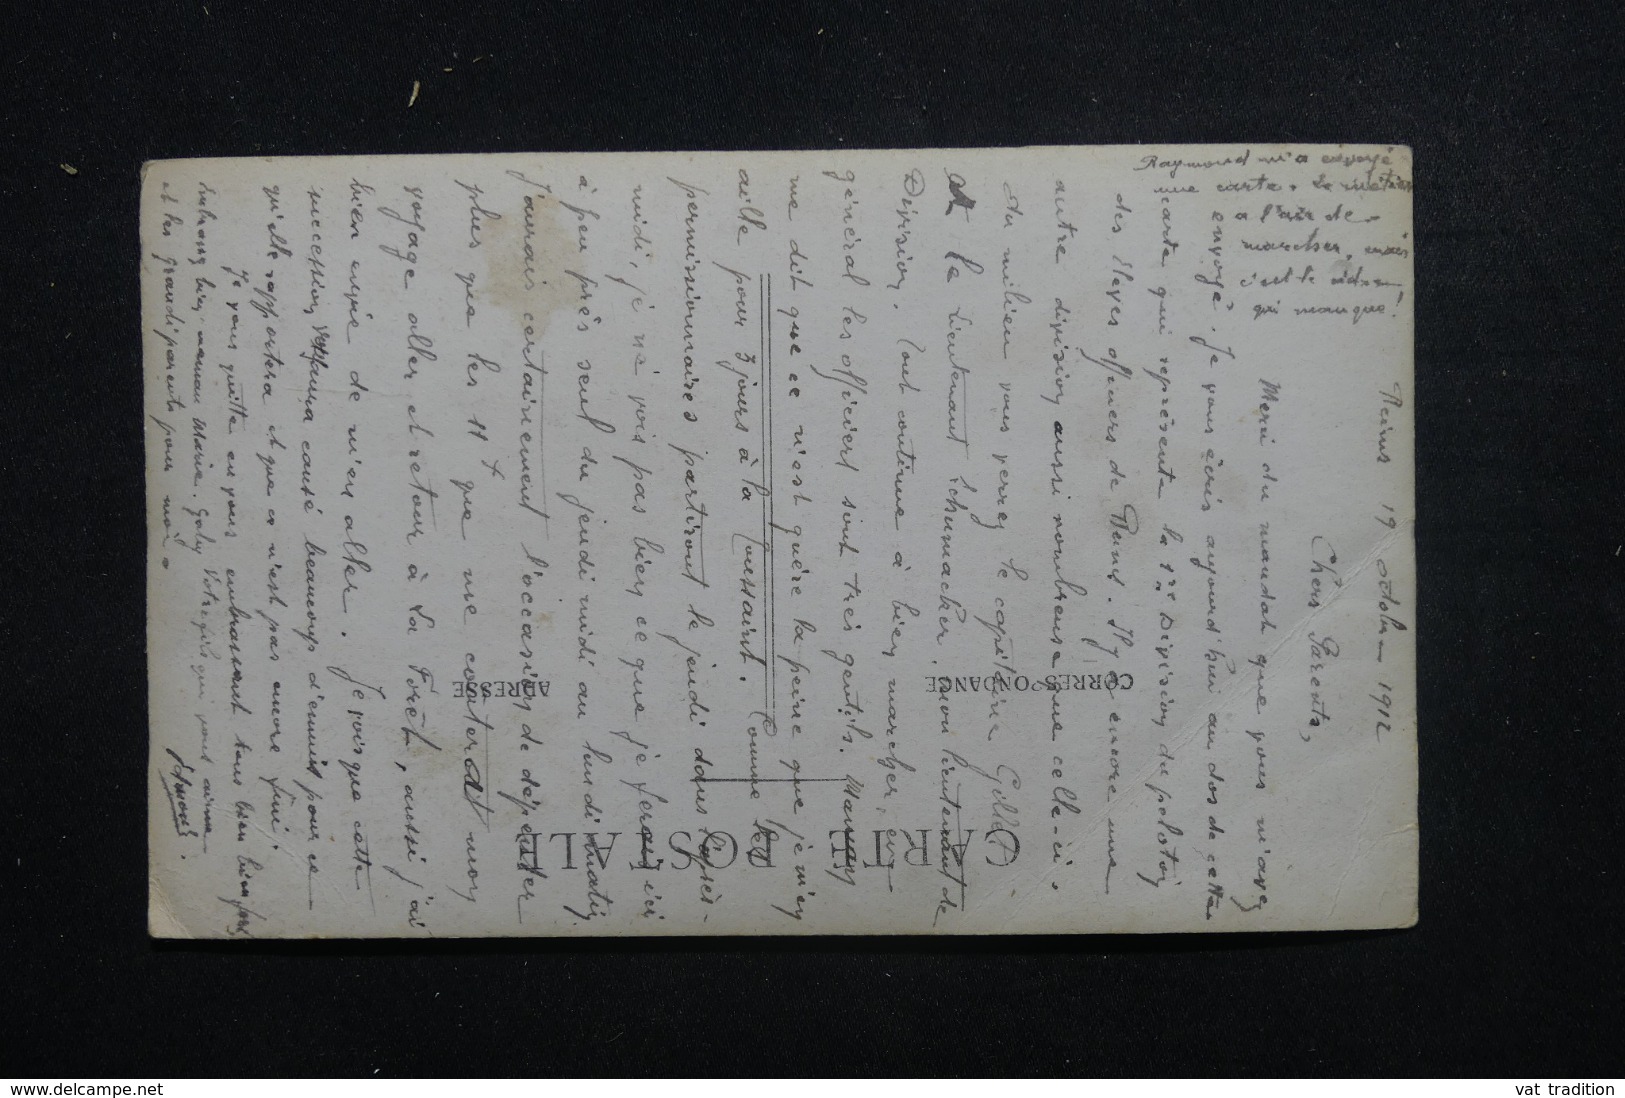 Reims 19 octobre 1912
Chers Parents,
Merci du mandat que vous m'avez
envoyé. Je vous écris aujourd'hui au dos de cette
carte qui représente la 1re Division du peloton
des élèves officiers de Reims. Il y a encore une
autre division aussi nombreuse que celle-ci.
Au milieu vous verrez le capitaine Gillet
et le Lieutenant Schumacker, mon lieutenant de
Division. Tout continue à bien marcher, en
général les officiers sont très gentils. Maman
me dit que ce n'est guère la peine que je m'en
aille pour 3 jours à la Toussaint. Comme les
permissionnaires partiront le jeudi dans l'après-
midi, je ne vois pas bien ce que je ferais ici
à peu près seul du jeudi midi au lundi matin
J'aurais certainement l'occasion de dépenser
plus que les 11 f que me coûterait mon
voyage aller et retour à La Forêt, aussi j'ai
bien envie de m'en aller. Je vois que cette
succession vous aura causé beaucoup d'ennuis pour ce
qu'elle rapportera et que ce n'est pas encore fini
Je vous quitte en vous embrassant tous bien bien fort
Embrassez bien maman Marie, Gaby Votre fils qui vous aime
et les grandsparents pour moi.
Edmond.
Raymond m'a envoyé
une carte. Le métier
a l'air de
marcher, mais
c'est le
qui manque!
CARTE POSTALE
CORRESPONDANCE
ADRESSE
www.delcampe.net
vat tradition